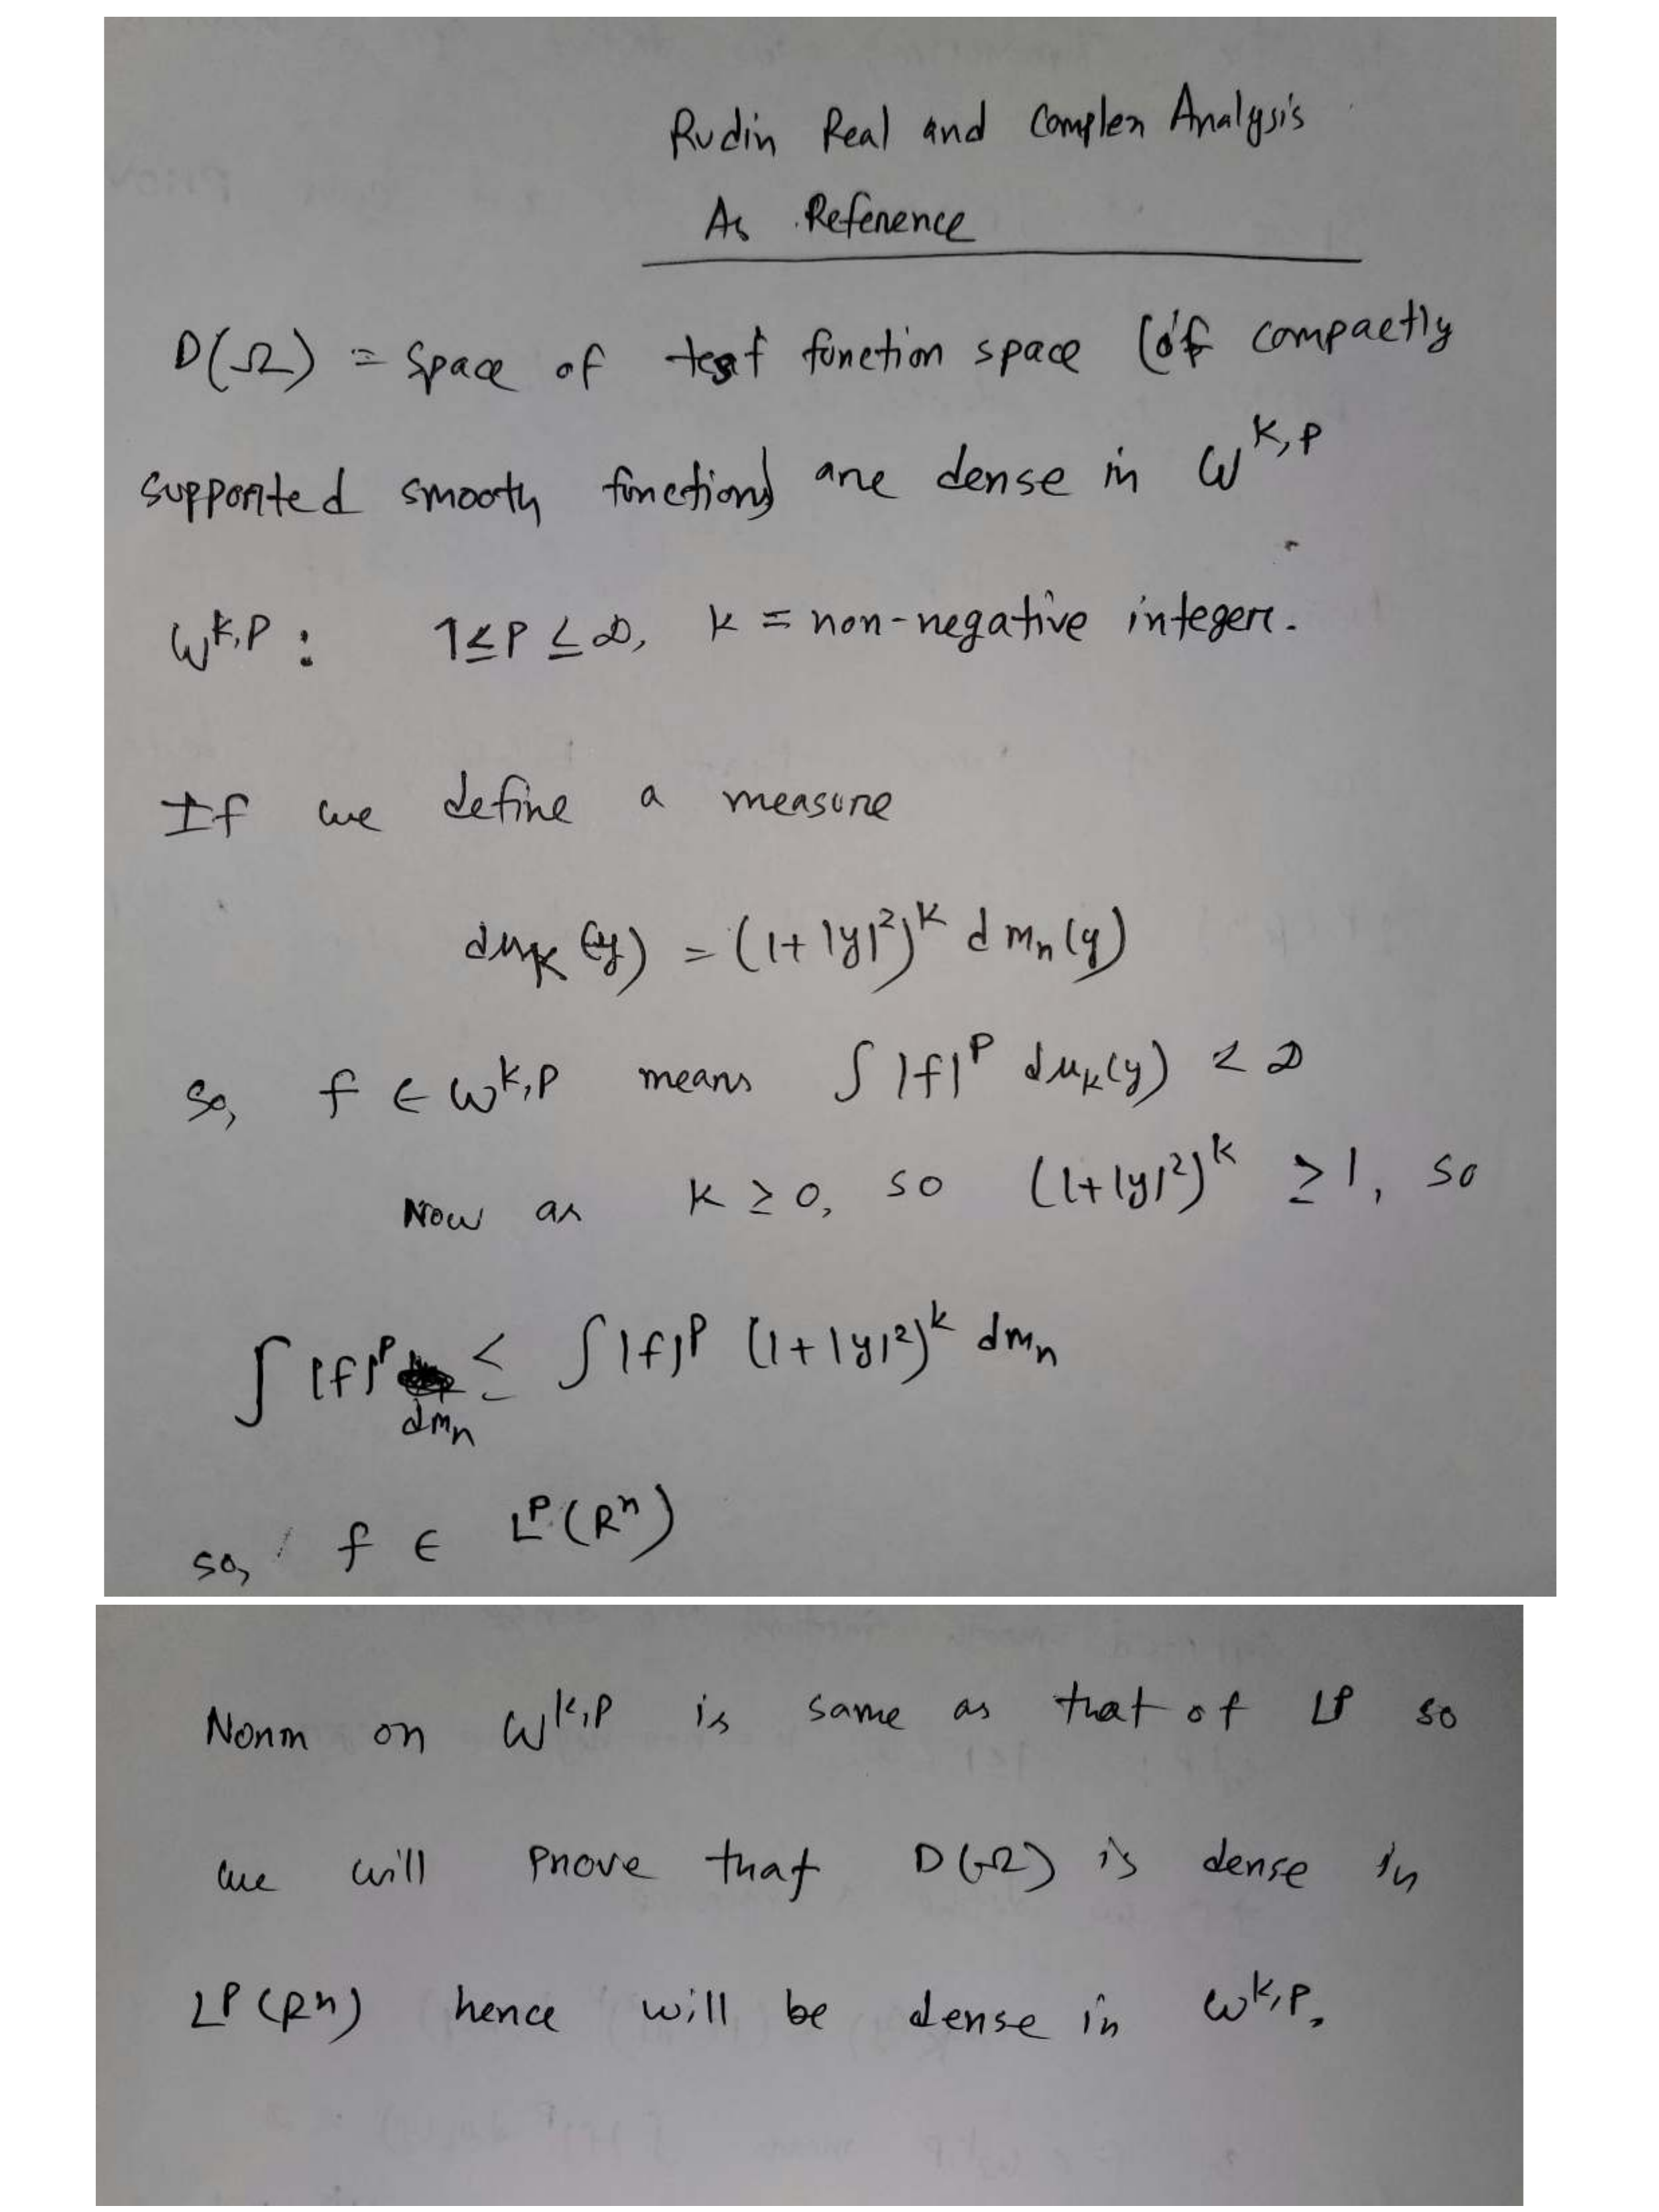 Rudin Real and Complex Analysis
As Reference
D(Ω) = Space of test function space (of compactly
supported smooth function) are dense in W^{k,p}
W^{k,p} : 1 ≤ p ≤ ∞, k = non-negative integer.
If we define a measure
dμ_k (y) = (1+|y|²)^k dm_n(y)
So, f ∈ W^{k,p} means ∫ |f|^p dμ_k(y) < ∞
Now as k ≥ 0, so (1+|y|²)^k ≥ 1, so
∫ |f|^p dm_n ≤ ∫ |f|^p (1+|y|²)^k dm_n
so, f ∈ L^p(R^n)
Norm on W^{k,p} is same as that of L^p so
we will prove that D(Ω) is dense in
L^p(R^n) hence will be dense in W^{k,p}.